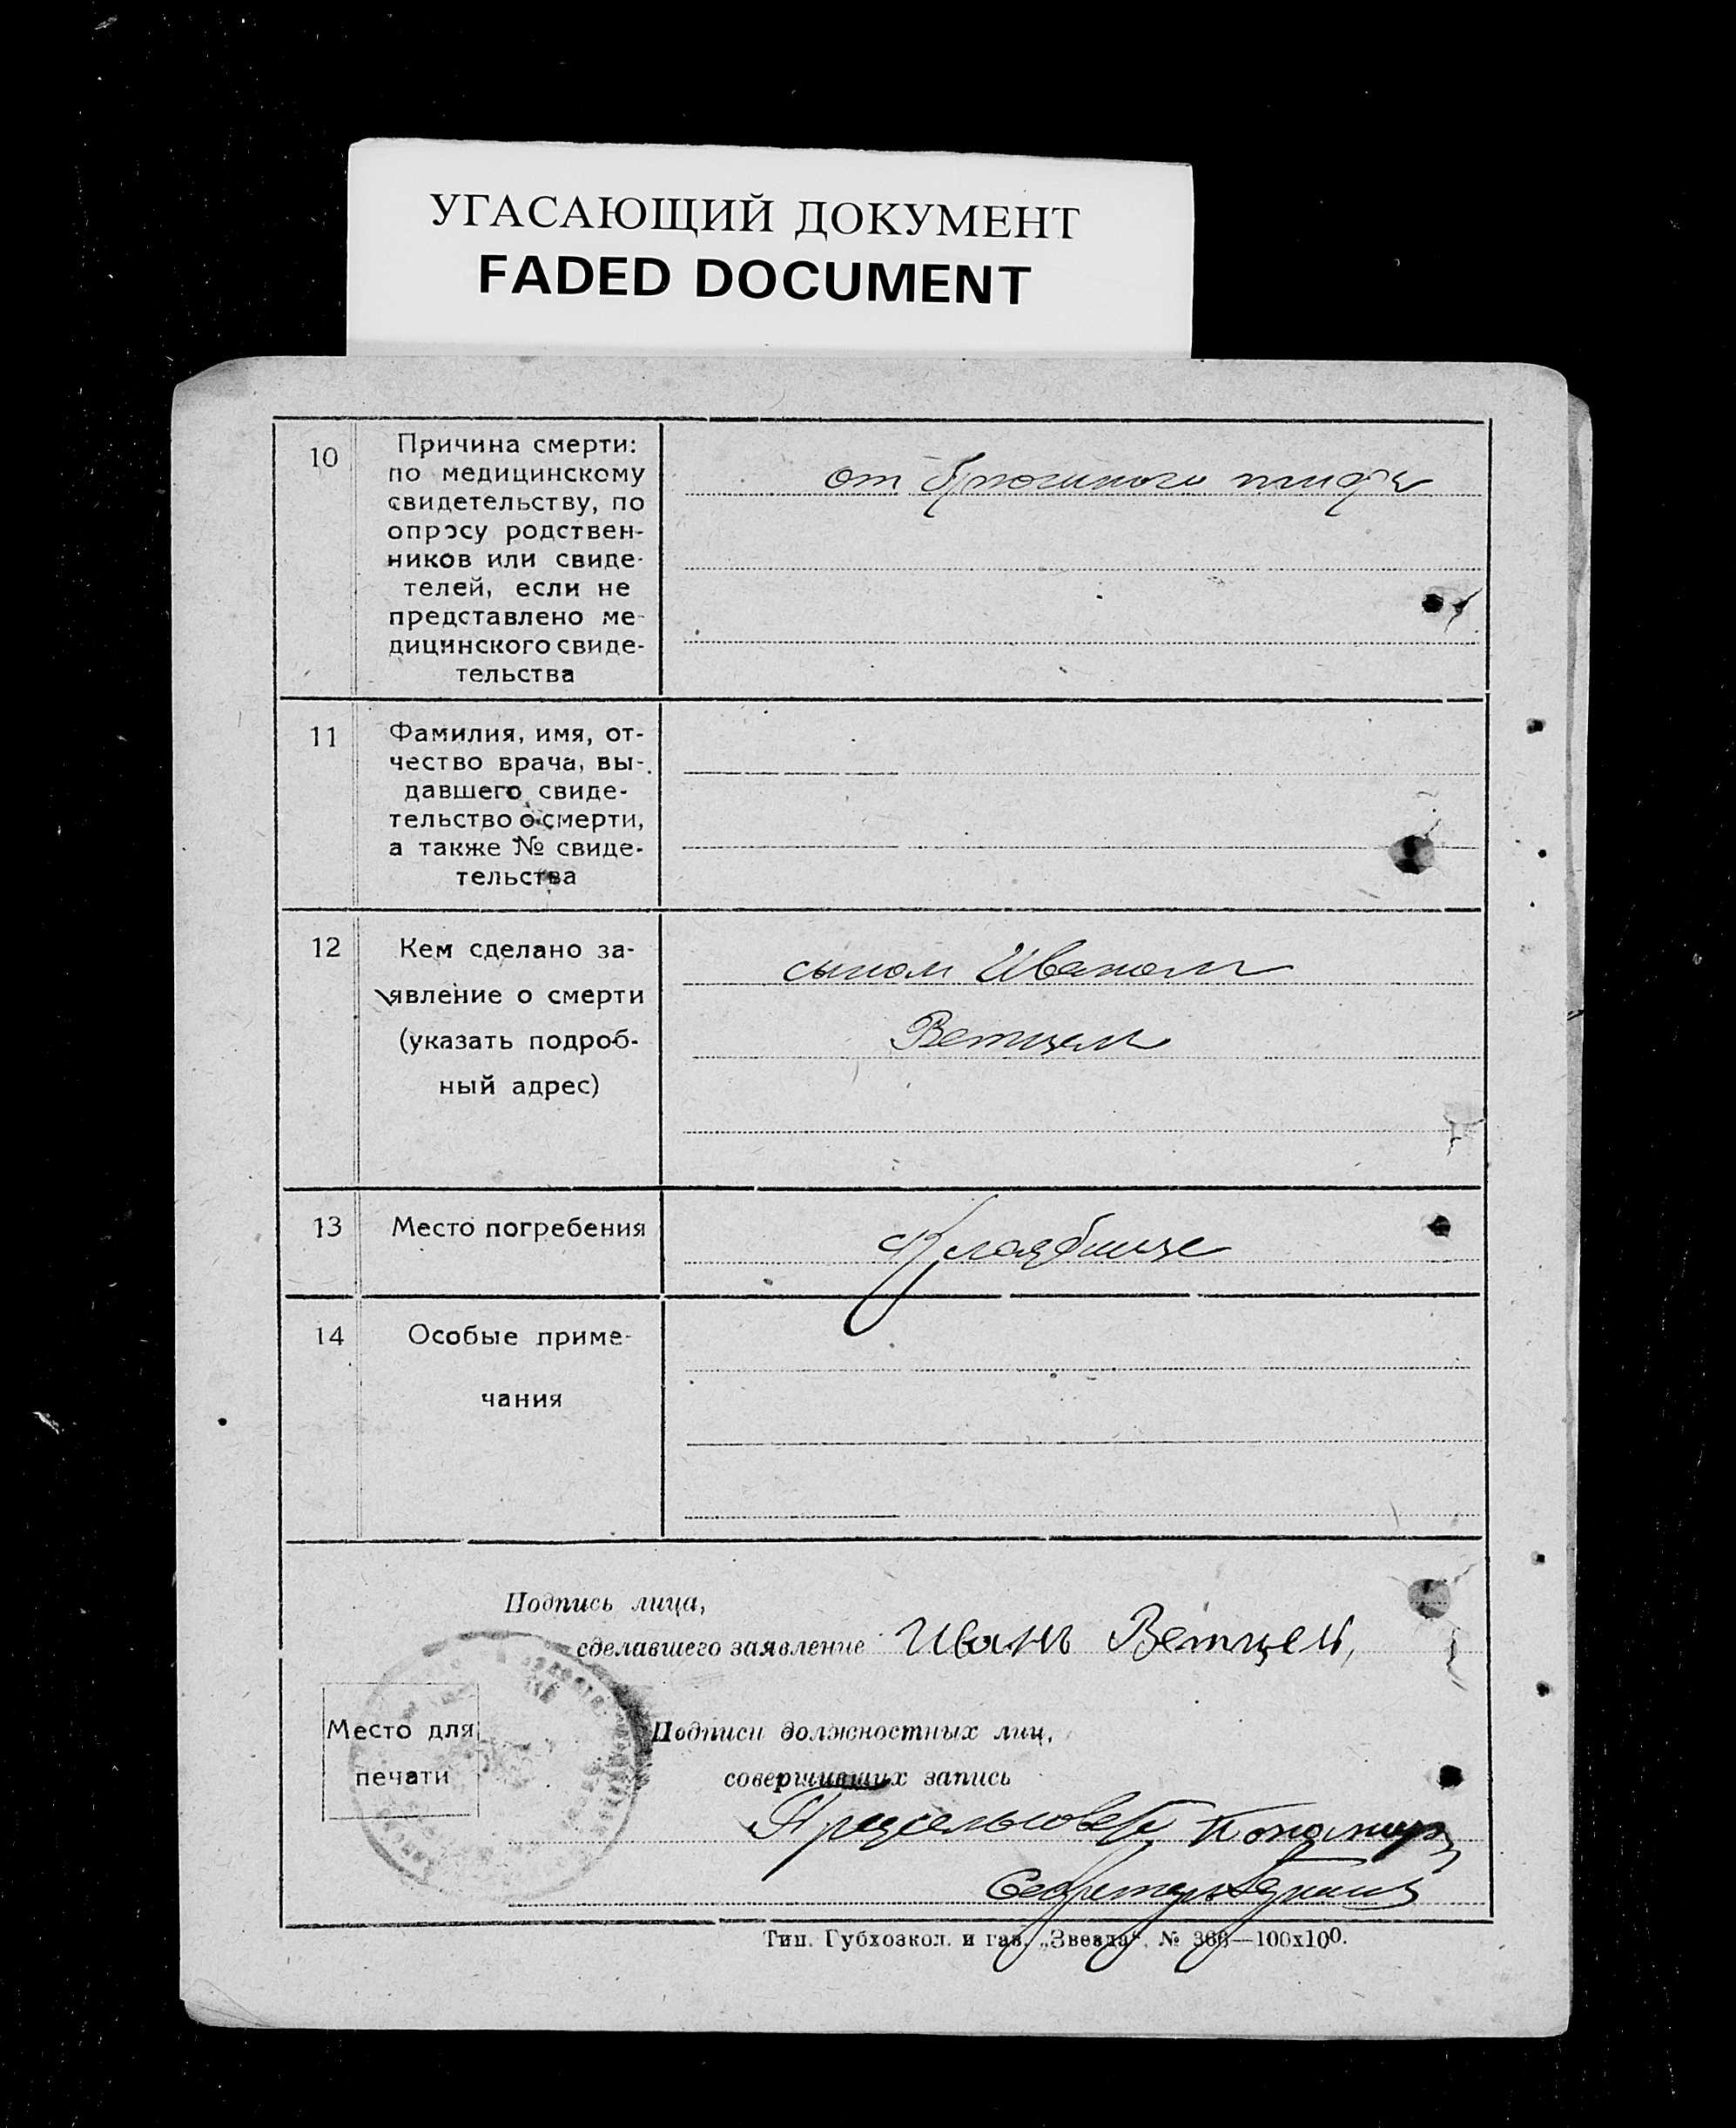 УГАСАЮЩИЙ ДОКУМЕНТ
FADED DOCUMENT
10
Причина смерти:
по медицинскому
свидетельству, по
опросу родствен-
ников или свиде-
телей, если не
представлено ме-
дицинского свиде-
тельства
от брюшного тифа
11
Фамилия, имя, от-
чество врача, вы-
давшего свиде-
тельство о смерти,
а также № свиде-
тельства
12
Кем сделано за-
явление о смерти
(указать подроб-
ный адрес)
сыном Иваном
Ветцель
13
Место погребения
Кладбище
14
Особые приме-
чания
Подпись лица,
сделавшего заявление Иванъ Ветцель,
Место для
печати
Подписи должностных лиц,
совершивших запись
Секретарь
Тип. Губхозкол. и газ. „Звезда“. № 366—100х100.